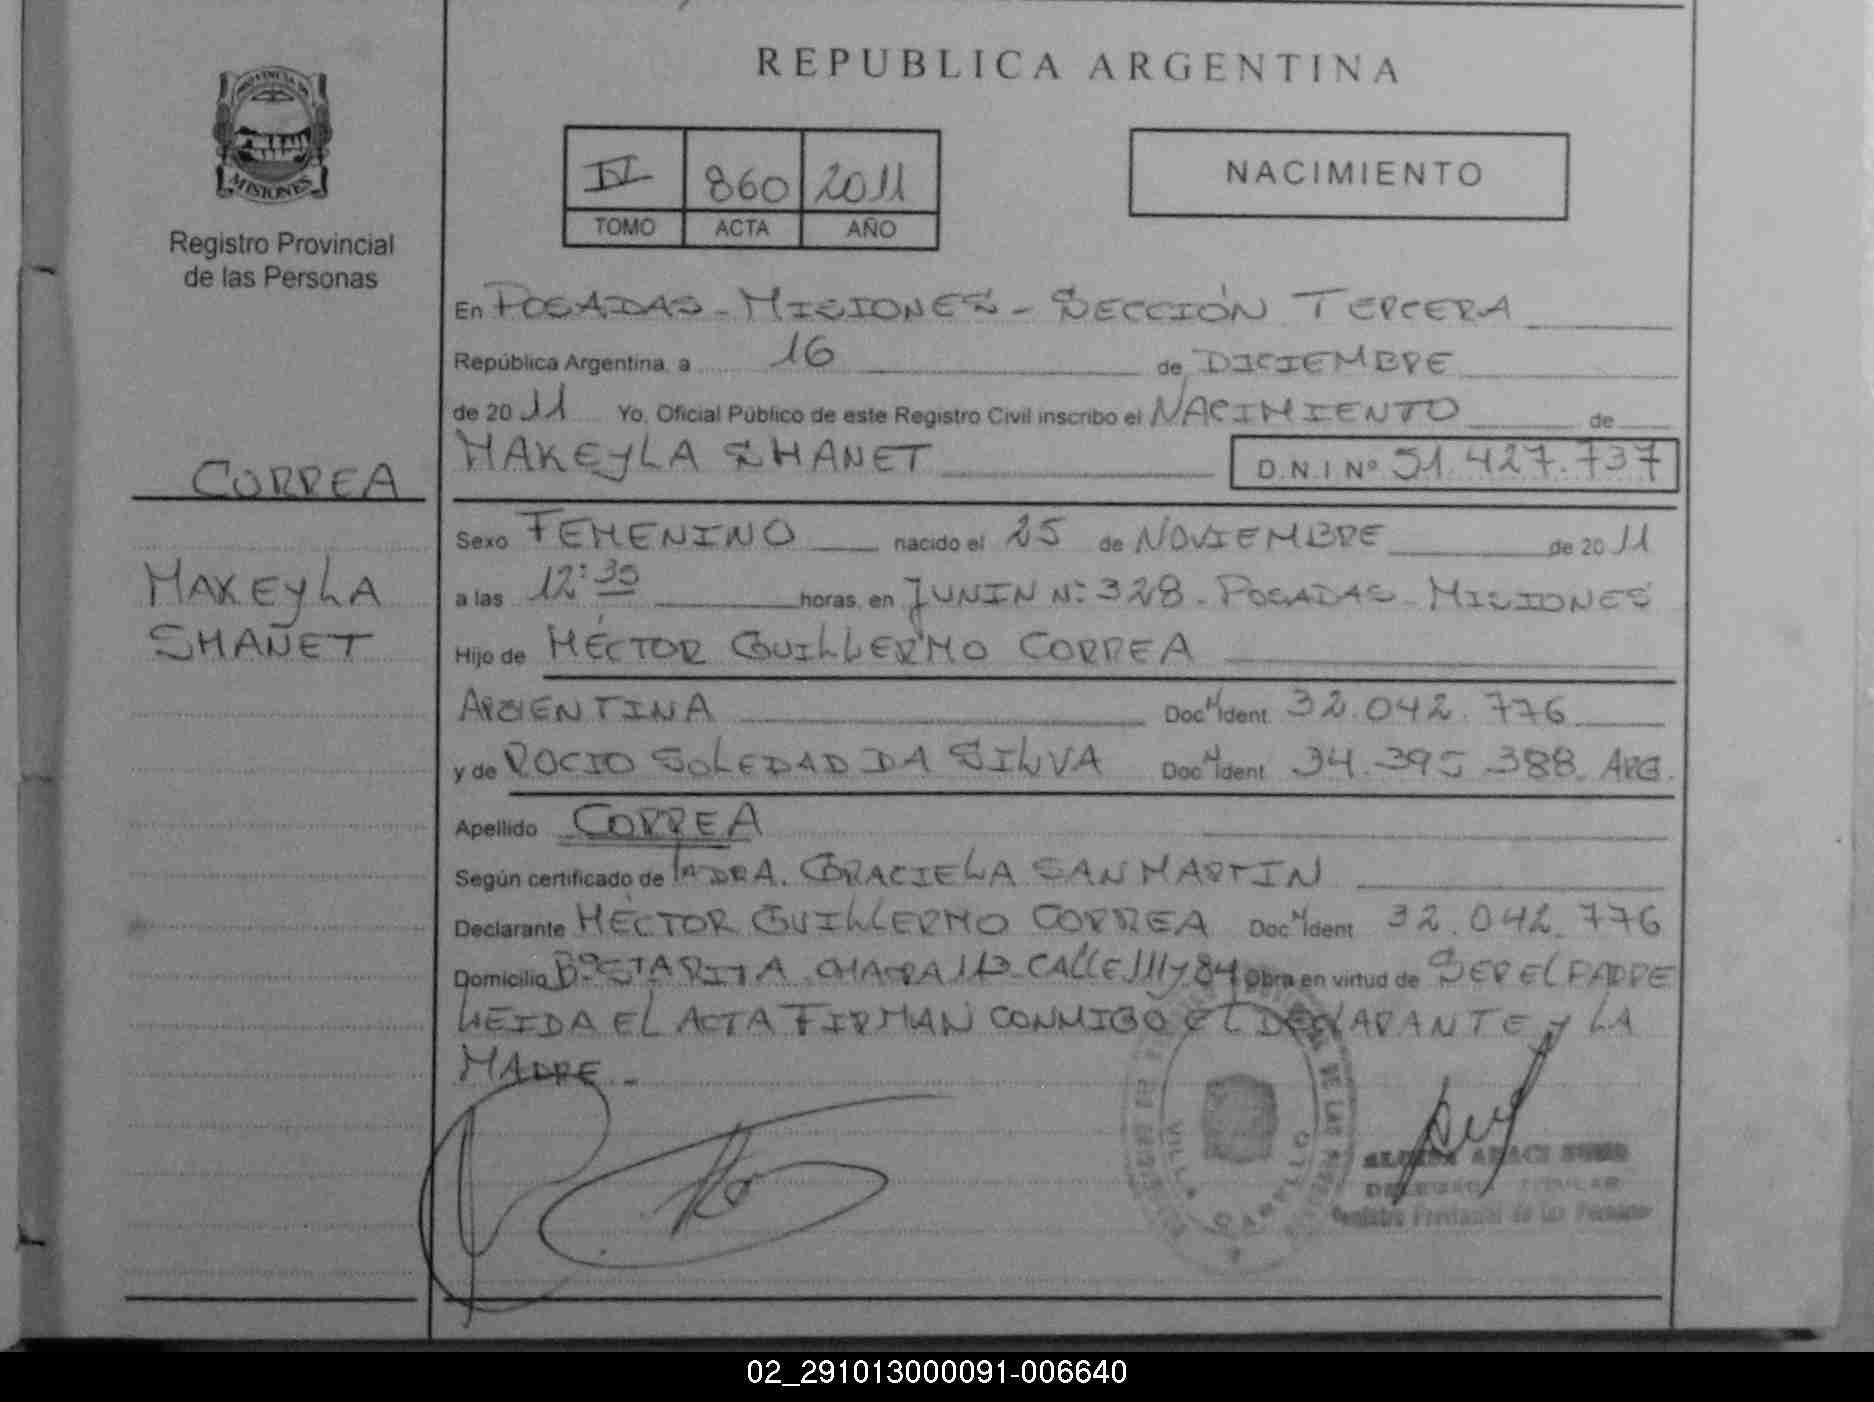 REPUBLICA ARGENTINA
PROVINCIA DE
MISIONES
Registro Provincial
de las Personas
IV 860 2011
TOMO ACTA AÑO
NACIMIENTO
En POSADAS - MISIONES - SECCIÓN TERCERA
República Argentina, a 16 de DICIEMBRE
de 2011 Yo, Oficial Público de este Registro Civil inscribo el NACIMIENTO de
MAKEYLA SHANET D.N.I Nº 51.427.737
CORREA
MAKEYLA
SHANET
Sexo FEMENINO nacido el 25 de NOVIEMBRE de 2011
a las 12:35 horas, en JUNIN Nº: 328 - POSADAS - MISIONES
Hijo de HÉCTOR GUILLERMO CORREA
ARGENTINA Doc. N Ident 32.042.776
y de ROCIO SOLEDAD DA SILVA Doc. N Ident 34.395.388 ARG.
Apellido CORREA
Según certificado de la DRA. GRACIELA SAN MARTIN
Declarante HÉCTOR GUILLERMO CORREA Doc. N Ident 32.042.776
Domicilio Bº STA RITA CHACRA 112 - CALLE 111 y 84 Obra en virtud de SER EL PADRE
LEIDA EL ACTA FIRMAN CONMIGO EL DECLARANTE y LA
MADRE. -
VILLA CABELLO
Registro Provincial de las Personas
02_291013000091-006640